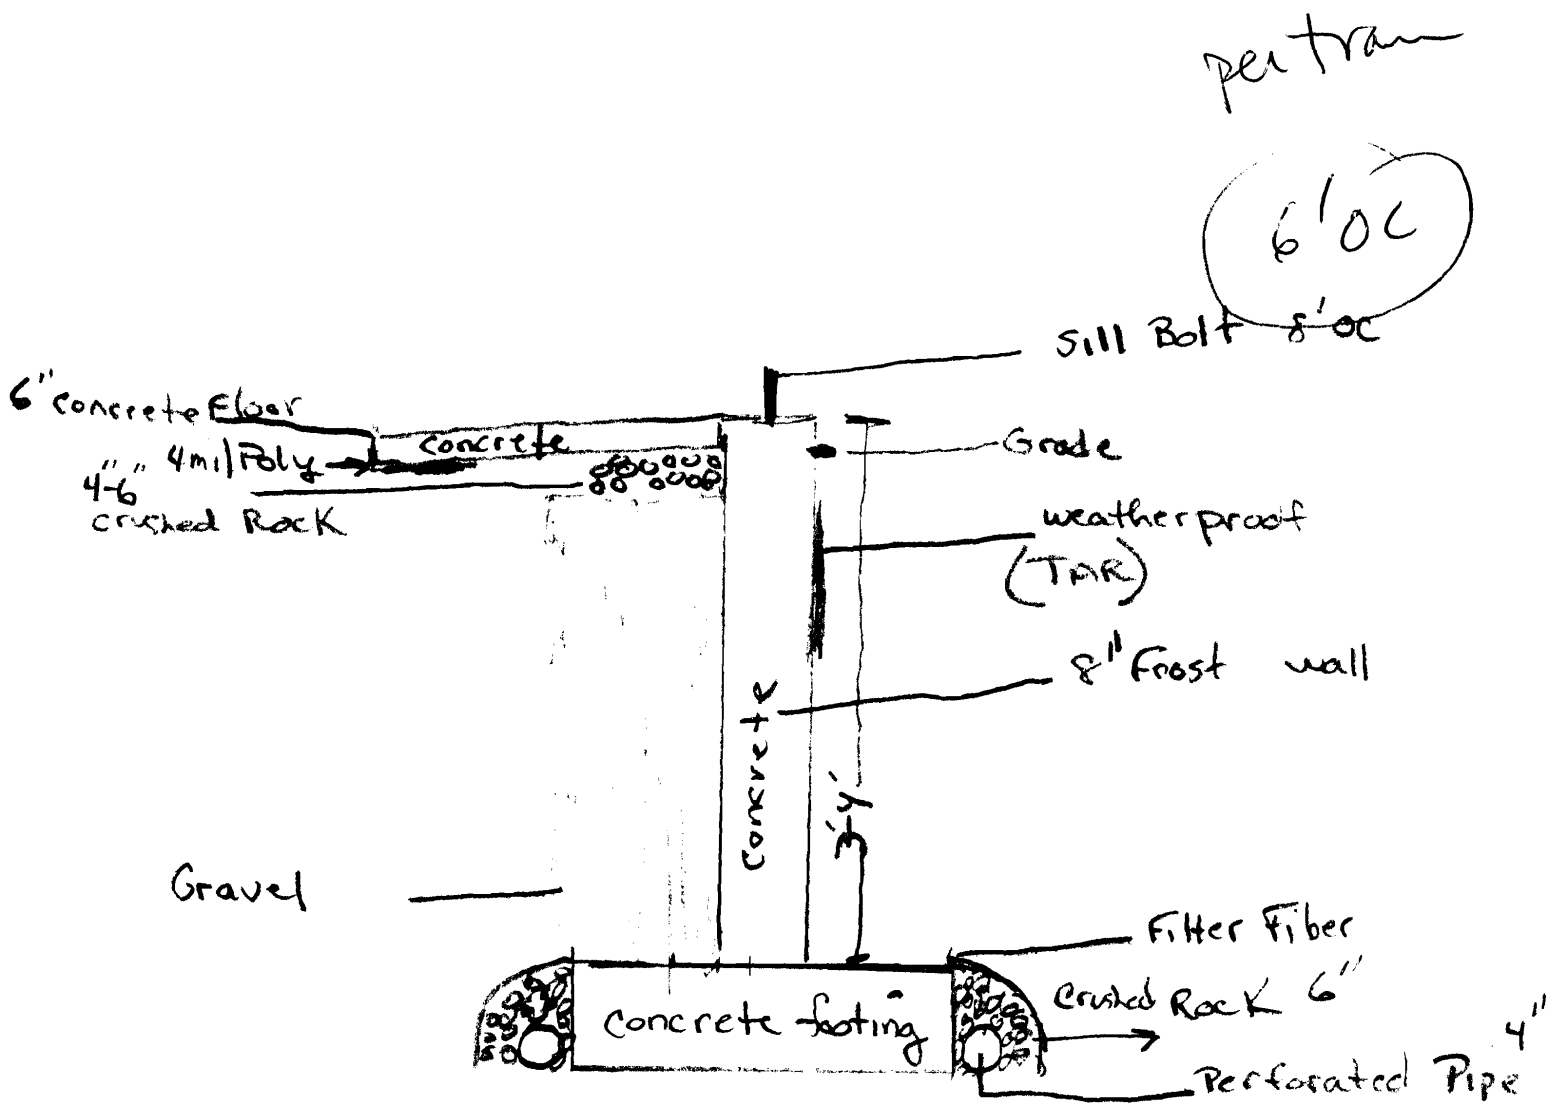 per tram
6' OC
Sill Bolt 8' OC
6" concrete Floor
concrete
Grade
4mil Poly
4"-6"
crushed Rock
weatherproof
(TAR)
8" Frost wall
concrete
Gravel
Filter Fiber
Crushed Rock 6"
concrete footing
4"
Perforated Pipe